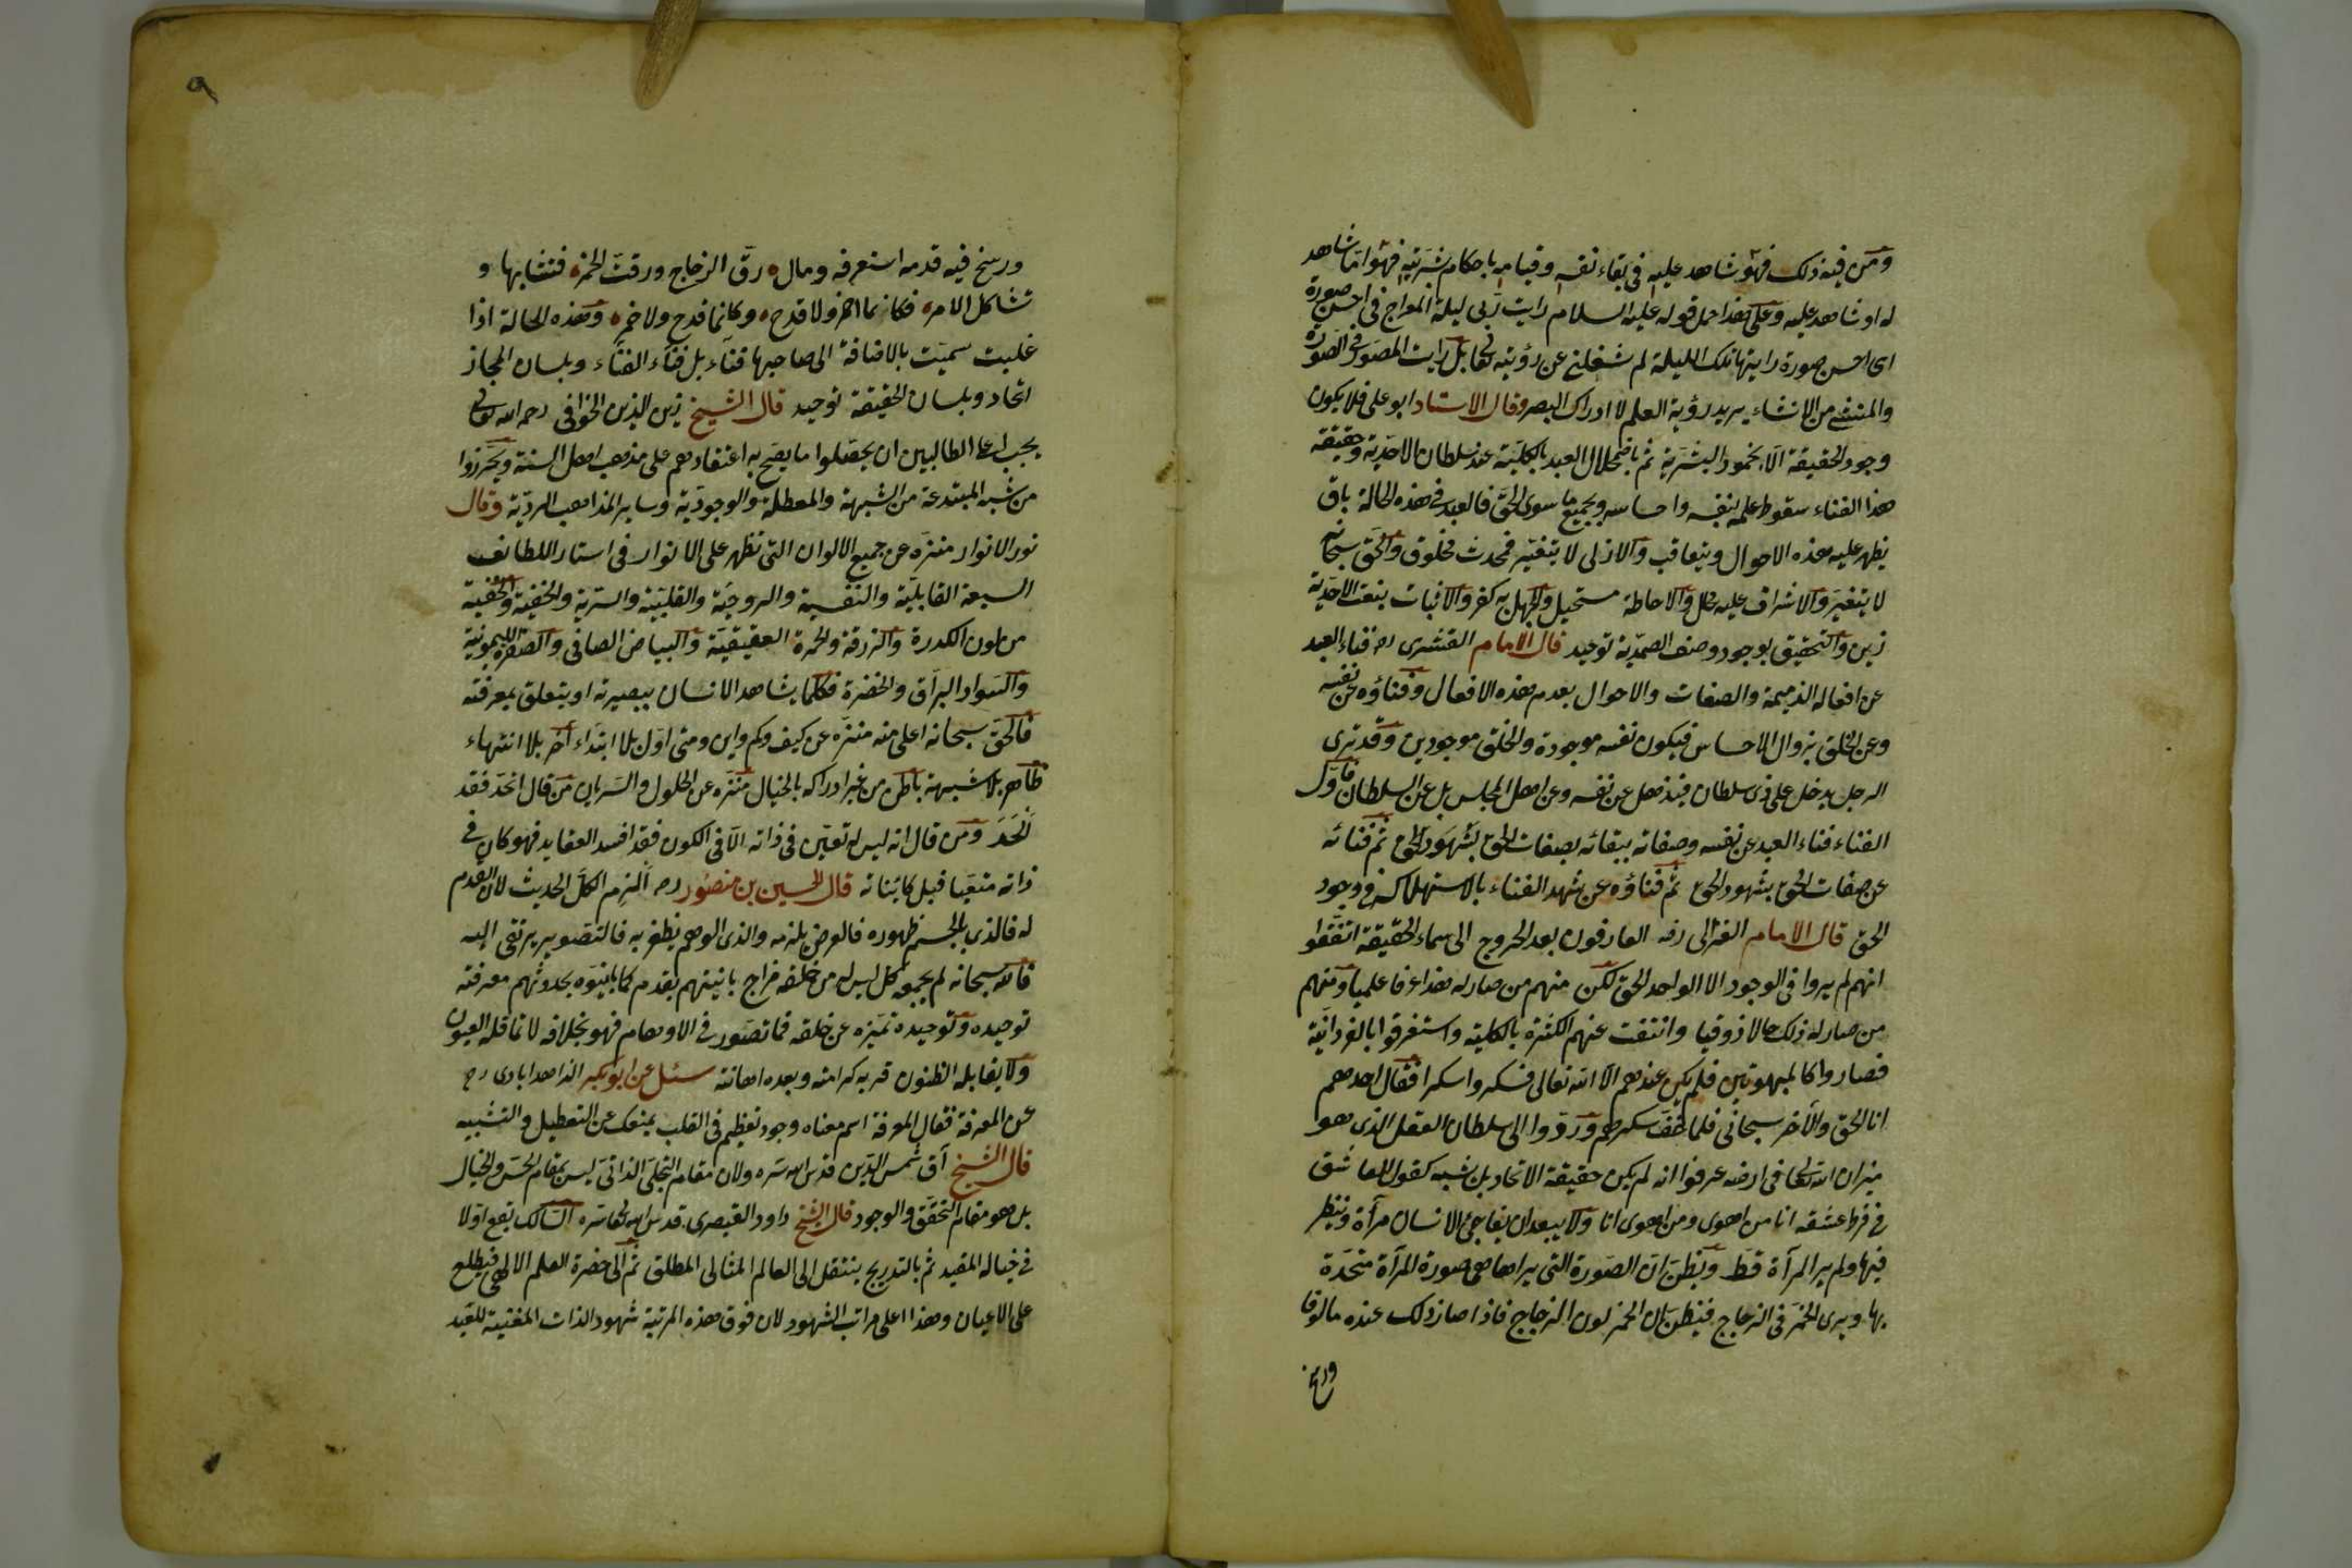 ومن فيه ذلك فهو شاهد عليه في بقاء نفسه وقيامه باحكام بشريته فهو اما شاهد
له او شاهد عليه وعلى هذا حمل قوله عليه السلام رايت ربى ليلة المعراج في احسن صورة
اى احسن صورة رايتها تلك الليلة لم تشغلنى عن رؤيته تعالى بل رايت المصور في الصورة
والمنشئ من الانشاء يريد رؤية العلم لا ادراك البصر وقال الاستاد ابو على فلا يكون
وجود الحقيقة الا بخمود البشرية ثم باضمحلال العبد بالكلية عند سلطان الاحدية وحقيقة
هذا الفناء سقوط علمه بنفسه واحساسه وبجميع ما سوى الحق فالعبد في هذه الحالة باق
يظهر عليه هذه الاحوال ويتعاقب والازلى لا يتغير فمحدث مخلوق والحق سبحانه
لا يتغير والاشراف عليه محال والاحاطة مستحيل والجهل به كفر والاثبات بنعت الاحدية
زين والتحقيق بوجود وصف الصمدية توحيد قال الامام القشيرى ره فناء العبد
عن افعاله الذميمة والصفات والاحوال بعدم هذه الافعال وفناؤه عن نفسه
وعن الخلق بزوال الاحساس فيكون نفسه موجودة والخلق موجودين وقد ترى
الرجل يدخل على ذى سلطان فيذهل عن نفسه وعن اهل المجلس بل عن السلطان فاول
الفناء فناء العبد عن نفسه وصفاته ببقائه بصفات الحق بشهود الحق ثم فنائه
عن صفات الحق بشهود الحق ثم فناؤه عن شهد الفناء بالاستهلاك في وجود
الحق قال الامام الغزالى رضه العارفون بعد العروج الى سماء الحقيقة اتفقوا
انهم لم يروا في الوجود الا الواحد الحق لكن منهم من صار له هذا عرفا علميا ومنهم
من صار له ذلك حالا ذوقيا وانتفت عنهم الكثرة بالكلية واستغرقوا بالفردانية
فصاروا كالمبهوتين فلم يكن عندهم الا الله تعالى فسكروا سكرا فقال احدهم
انا الحق والآخر سبحانى فلما خف سكرهم وردوا الى سلطان العقل الذى هو
ميزان الله تعالى في ارضه عرفوا انه لم يكن حقيقة الاتحاد بل شبه كقول العاشق
في فرط عشقه انا من اهوى ومن اهوى انا ولا يبعد ان يفاجئ الانسان مرآة وينظر
فيها ولم ير المرآة قط ويظن ان الصورة التى يراها هى صورة المرآة متحدة
بها ويرى الخمر في الزجاج فيظن ان الخمر لون الزجاج فاذا صار ذلك عنده مالوفا
ورسخ
٩
ورسخ فيه قدمه استغرقه ومال رق الزجاج ورقت الخمر فتشابها و
تشاكل الامر فكانما خمر ولا قدح وكانما قدح ولا خمر وهذه الحالة اذا
غلبت سميت بالاضافة الى صاحبها فناء بل فناء الفناء وبلسان المجاز
اتحاد وبلسان الحقيقة توحيد قال الشيخ زين الدين الخوافى رحمه الله تعالى
يجب على الطالبين ان يحصلوا ما يصح به اعتقادهم على مذهب اهل السنة ويحترزوا
من شبه المبتدعة من المشبهة والمعطلة والوجودية وساير المذاهب الردية وقال
نور الانوار منزه عن جميع الالوان التى تظهر على الانوار في استار اللطائف
السبعة القابلية والنفسية والروحية والقلبية والسرية والخفية والحقية
من لون الكدرة والزرقة والحمرة العقيقية والبياض الصافى والصفرة الليمونية
والسواد البراق والخضرة فكلما يشاهد الانسان ببصيرته او يتعلق بمعرفته
فالحق سبحانه اعلى منه منزه عن كيف وكم واين ومتى اول بلا ابتداء آخر بلا انتهاء
ظاهر بلا شبهة باطن من غير ادراكه بالخيال منزه عن الحلول والسريان من قال اتحد فقد
الحد ومن قال انه ليس له تعين في ذاته الا في الكون فقد افسد العقايد فهو كان في
ذاته متعينا قبل كايناته قال الحسين بن منصور ره الزم الكل الحديث لان القدم
له فالذى بالجسم ظهوره فالعرض يلزمه والذى الوهم يظفر به فالتصوير يرتقى اليه
فالله سبحانه لم يجمعه كل ليس له من خلقه مزاج باينهم بقدمه كما باينوه بحدوثهم معرفته
توحيده وتوحيده تميزه عن خلقه فما تصور في الاوهام فهو بخلافه لا تماقله العيون
ولا يقابله الظنون قربه كرامته وبعده اهانته سئل عن ابو بكر الزاهدابادى رح
عن المعرفة فقال المعرفة اسم معناه وجود تعظيم في القلب يمنعك عن التعطيل والتشبيه
قال الشيخ آق شمس الدين قدس الله سره ولان مقام التجلى الذاتى ليس بمقام الحس والخيال
بل هو مقام التحقق والوجود قال الشيخ داود القيصرى قدس الله تعالى سره السالك يقع اولا
في خياله المقيد ثم بالتدريج ينتقل الى العالم المثالى المطلق ثم الى حضرة العلم الالهى فيطلع
على الاعيان وهذا اعلى مراتب الشهود لان فوق هذه المرتبة شهود الذات المفنية للعبد